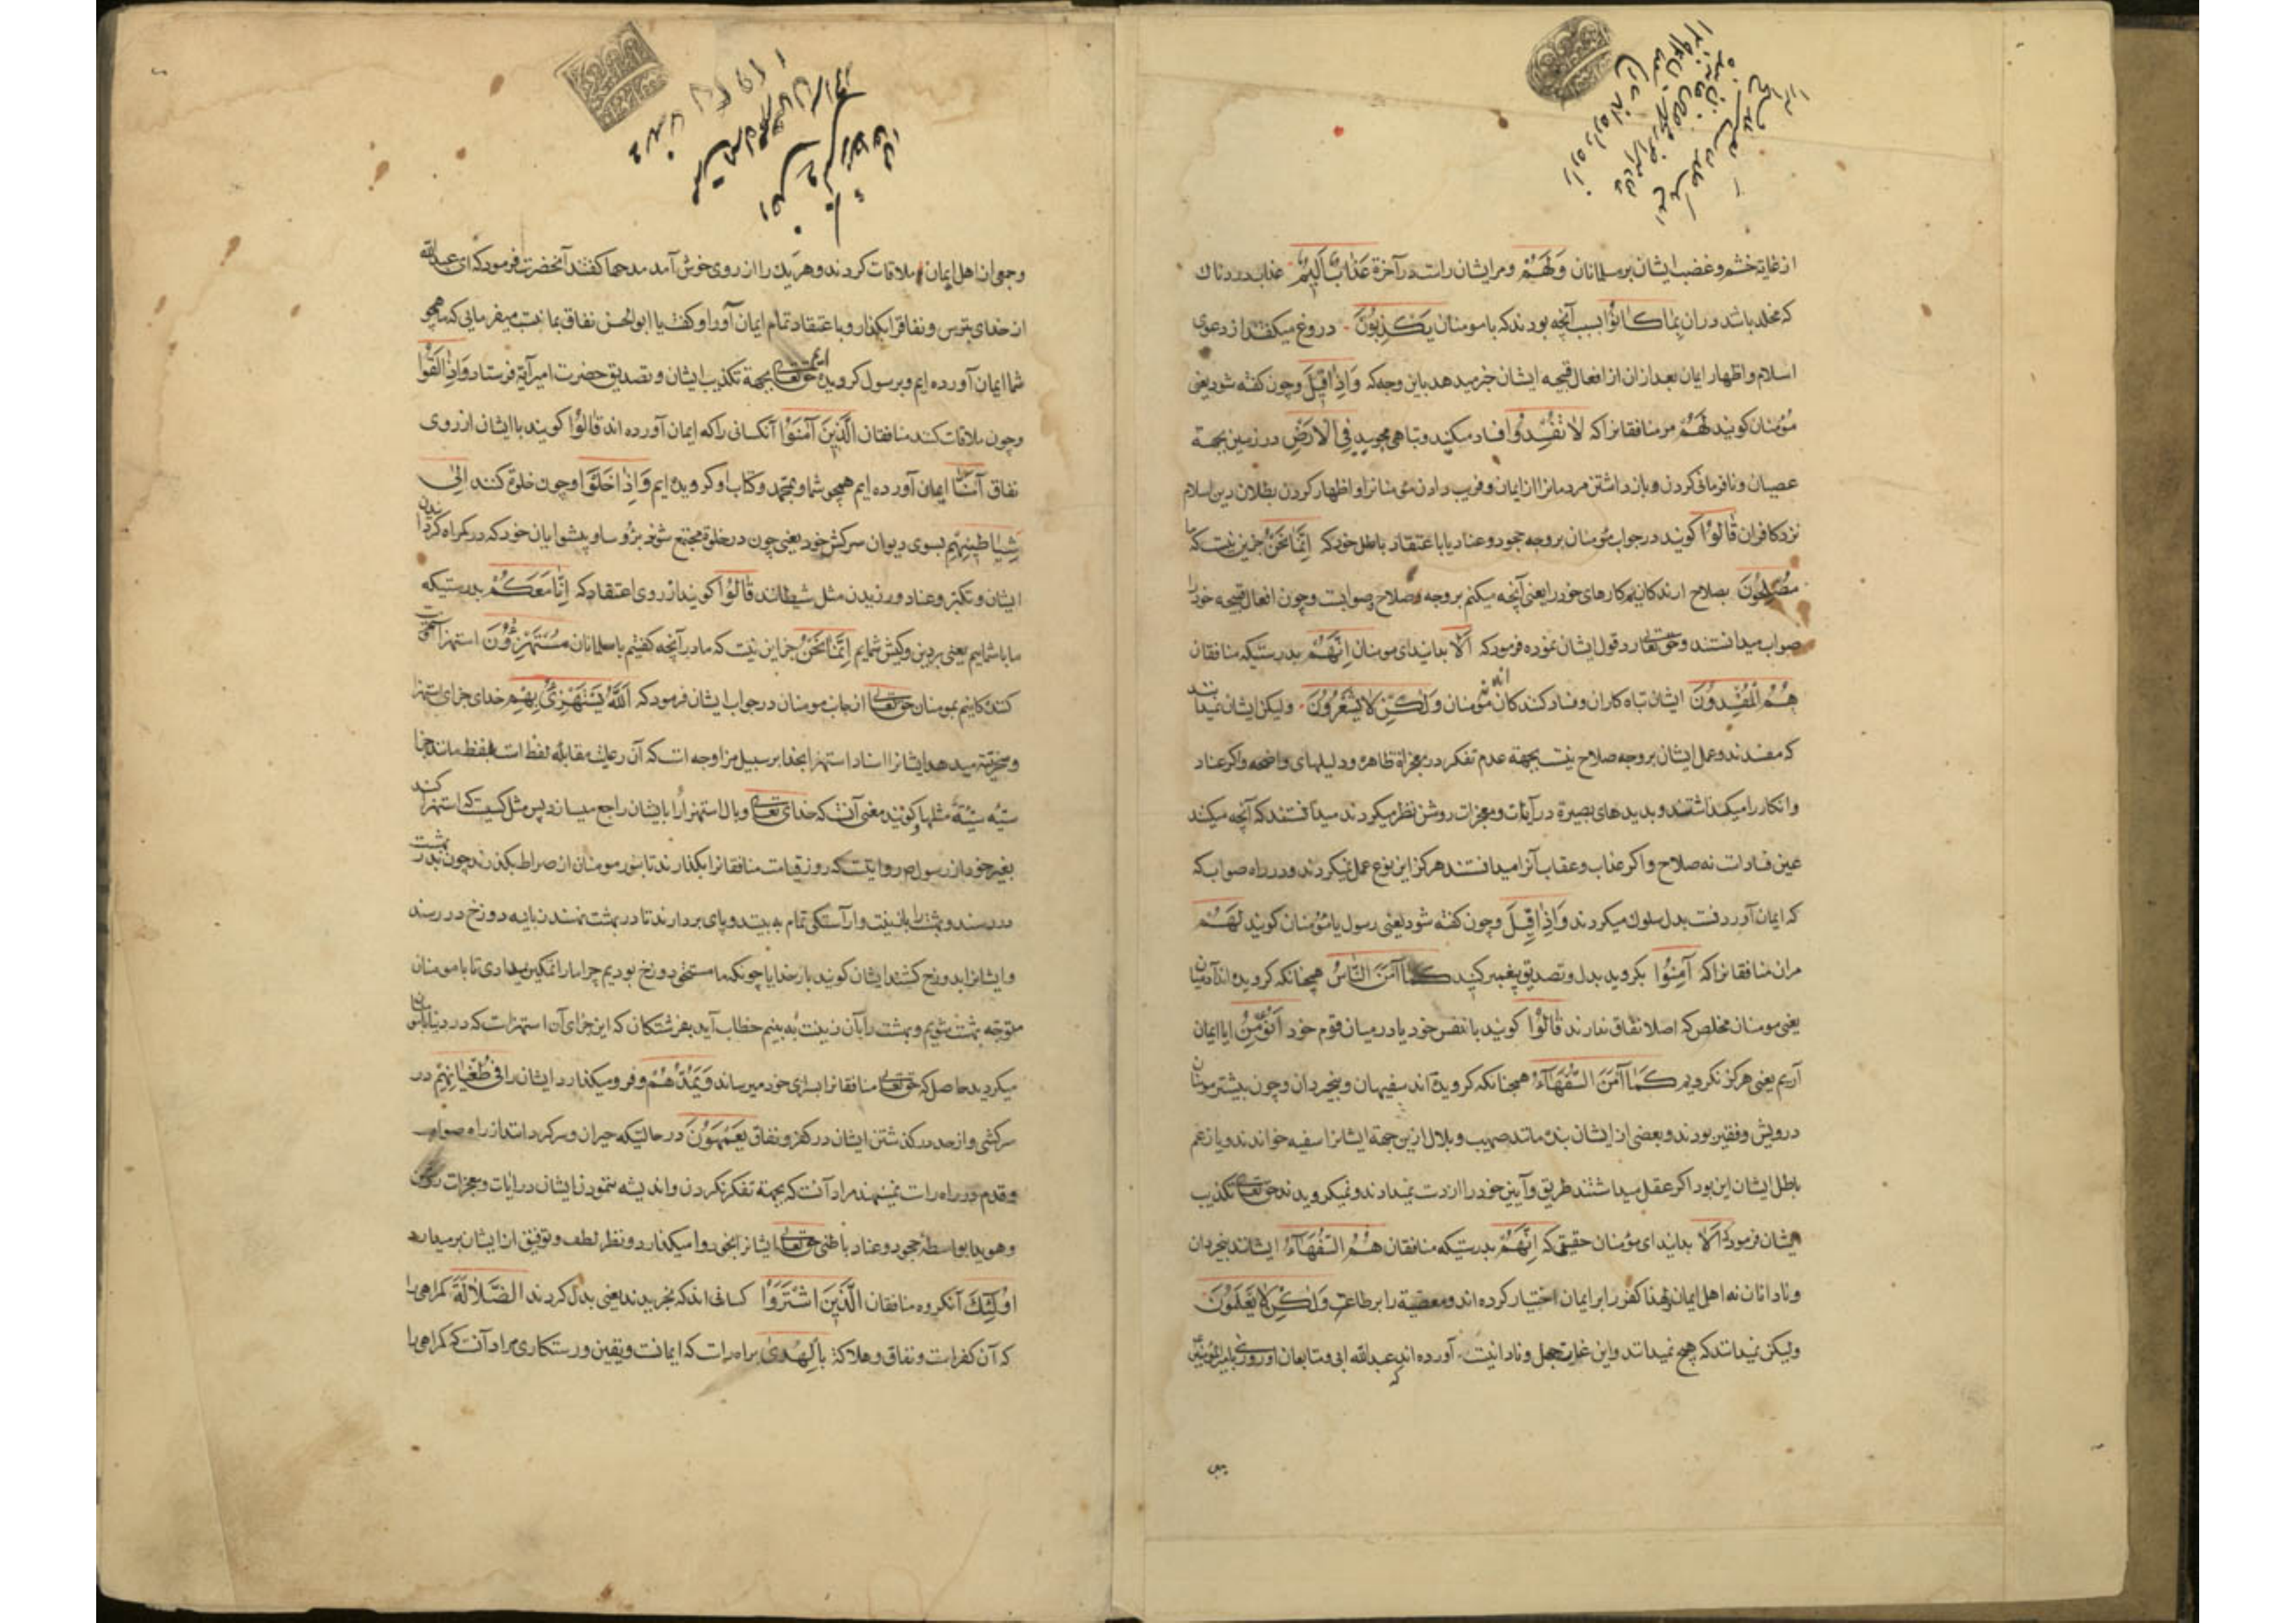 از غایة خشم و غضب ایشان بر مسلمانان وَلَهُمْ و مر ایشان راست در آخرة عَذَابٌ أَلِیمٌ عذاب دردناک
که مخلد باشد در ان بِمَا كَانُوا بسبب آنچه بودند که با مومنان يَكْذِبُونَ دروغ میکفتند از دعوی
اسلام و اظهار ایمان بعد از ان از افعال قبیحه ایشان خبر میدهد باین وجه که وَإِذَا قِيلَ و چون کفته شود یعنی
مؤمنان کویند لَهُمْ مر منافقانرا که لَا تُفْسِدُوا فساد مکنید و تباهی مجویید فِي الْأَرْضِ در زمین بجهة
عصیان و نافرمانی کردن و باز داشتن مردمانرا از ایمان و فریب دادن مؤمنانرا و اظهار کردن بطلان دین اسلام
نزد کافران قَالُوا کویند در جواب مؤمنان بر وجه جحود و عناد یا باعتقاد باطل خود که إِنَّمَا نَحْنُ جز این نیست که ما
مُصْلِحُونَ بصلاح ارندکانیم کارهای خود را یعنی آنچه میکنیم بر وجه صلاح و صوابست و چون افعال قبیحه خود را
صواب میدانستند و حق تعالی رد قول ایشان نموده فرمود که أَلَا بدانید ای مومنان إِنَّهُمْ بدرستیکه منافقان
هُمُ الْمُفْسِدُونَ ایشان تباه کاران و فساد کنندکان مؤمنان وَلَكِنْ لَا يَشْعُرُونَ ولیکن ایشان نمیدانند
که مفسدند و عمل ایشان بر وجه صلاح نیست بجهة عدم تفکر در معجزاة ظاهره و دلیلهای واضحه و اکر عناد
و انکار را میکذاشتند و بدیدهای بصیرة در آیات و معجزات روشن نظر میکردند میدانستند که آنچه میکنند
عین فسادات نه صلاح و اکر عذاب و عقاب آنرا میدانستند هرکز این نوع عمل نمیکردند و در راه صواب که
که ایمان آوردنست بدل سلوک میکردند وَإِذَا قِيلَ و چون کفته شود یعنی رسول یا مؤمنان کویند لَهُمْ
مر ان منافقانرا که آمِنُوا بکروید بدل و تصدیق پیغمبر کنید كَمَا آمَنَ النَّاسُ همچنانکه کرویده اند آدمیان
یعنی مومنان مخلص که اصلا نفاق ندارند قَالُوا کویند با نفس خود یا در میان قوم خود أَنُؤْمِنُ ایا ایمان
آریم یعنی هرکز نکرویم كَمَا آمَنَ السُّفَهَاءُ همچنانکه کرویده اند سفیهان و بیخردان و چون بیشتر مومنان
درویش و فقیر بودند و بعضی از ایشان بنده مانند صهیب و بلال ازین جهة ایشانرا سفیه خواندند و یا زعم
باطل ایشان این بود اکر عقل میداشتند طریق و آیین خود را از دست نمیدادند و نمیکرویدند حق تعالی تکذیب
ایشان فرمود که أَلَا بدانید ای مؤمنان حقیقی که إِنَّهُمْ بدرستیکه منافقان هُمُ السُّفَهَاءُ ایشانند بیخردان
و نادانان نه اهل ایمان لهذا کفر را بر ایمان اختیار کرده اند و معصیة را بر طاعة وَلَكِنْ لَا يَعْلَمُونَ
ولیکن نمیدانند که هیچ نمیدانند و این غایت جهل و نادانیست آورده اند که عبدالله ابی و متابعان او روزی بامیرالمؤمنین
و جمعی از اهل ایمان ملاقات کردند و هر یک را از روی خوش آمد مدحها کفتند آنحضرت فرمود که ای عبدالله
از خدای بترس و نفاق را بکذار و باعتقاد تمام ایمان آور او کفت یا ابوالحسن نفاق بما نسبت میفرمایی که ما همچو
شما ایمان آورده ایم و برسول کرویده ایم حق تعالی بجهة تکذیب ایشان و تصدیق حضرت امیر آیة فرستاد وَإِذَا لَقُوا
و چون ملاقات کنند منافقان الَّذِينَ آمَنُوا آنکسانی را که ایمان آورده اند قَالُوا کویند با ایشان از روی
نفاق آمَنَّا ایمان آورده ایم همچو شما و بمحمد و کتاب او کرویده ایم وَإِذَا خَلَوْا و چون خلوة کنند إِلَى
شَيَاطِينِهِمْ بسوی دیوان سرکش خود یعنی چون در خلوة مجتمع شوند با رؤسا و پیشوایان خود که در کمراه کردانیدن
ایشان و تکبر و عناد ورزیدن مثل شیطانند قَالُوا کویند از روی اعتقاد که إِنَّا مَعَكُمْ بدرستیکه
ما با شماییم یعنی بر دین و کیش شماییم إِنَّمَا نَحْنُ جز این نیست که ما در آنچه کفتیم با مسلمانان مُسْتَهْزِؤُنَ استهزا
کنندکانیم بمومنان حق تعالی از جانب مومنان در جواب ایشان فرمود که اللَّهُ يَسْتَهْزِئُ بِهِمْ خدای جزای استهزا
و سخریت میدهد ایشانرا اسناد استهزا بخدا بر سبیل مزاوجه است که آن رعایت مقابله لفظ است بلفظ مانند جزا
سیئه سیئة مثلها و کویند معنی آنست که خدای تعالی وبال استهزا را بایشان راجع میسازد پس مثل کسیست که استهزا کند
بغیر خود از رسول ص روایتست که روز قیامت منافقانرا بکذارند تا بنور مومنان از صراط بکذرند چون بدر بهشت
در رسند و بهشت را بانیت و آراستکی تمام به بینند و پای بردارند تا در بهشت نهند زبانیه دوزخ در رسند
و ایشانرا بدوزخ کشند ایشان کویند بار خدایا چونکه ما مستحق دوزخ بودیم چرا ما را نمکین میداری تا با مومنان
متوجه بهشت شویم و بهشت را بآن زینت به بینیم خطاب آید بفرشتکان که این جزای آن استهزاست که در دنیا با مومنان
میکردید حاصل که حق تعالی منافقانرا بسزای خود میرساند وَيَمُدُّهُمْ و فرو میکذارد ایشان را فِي طُغْيَانِهِمْ در
سرکشی و از حد در کذشتن ایشان در کفر و نفاق يَعْمَهُونَ در حالتیکه حیران و سرکردانند از راه صواب
و قدم در راه راست نمینهند مراد آنست که بجهة تفکر نکردن و اندیشه ننمودن ایشان در ایات و معجزات روشن
و هویدا بواسطه جحود و عناد باطنی حق تعالی ایشانرا بخود وا میکذارد و نظر لطف و توفیق از ایشان برمیدارد
أُولَئِكَ آنکروه منافقان الَّذِينَ اشْتَرَوُا کسانی اند که بخریدند یعنی بدل کردند الضَّلَالَةَ کمراهی را
که آن کفر است و نفاق و هلاکة بِالْهُدَى براه راست که ایمانست و یقین و رستکاری مراد آنست که کمراهی را